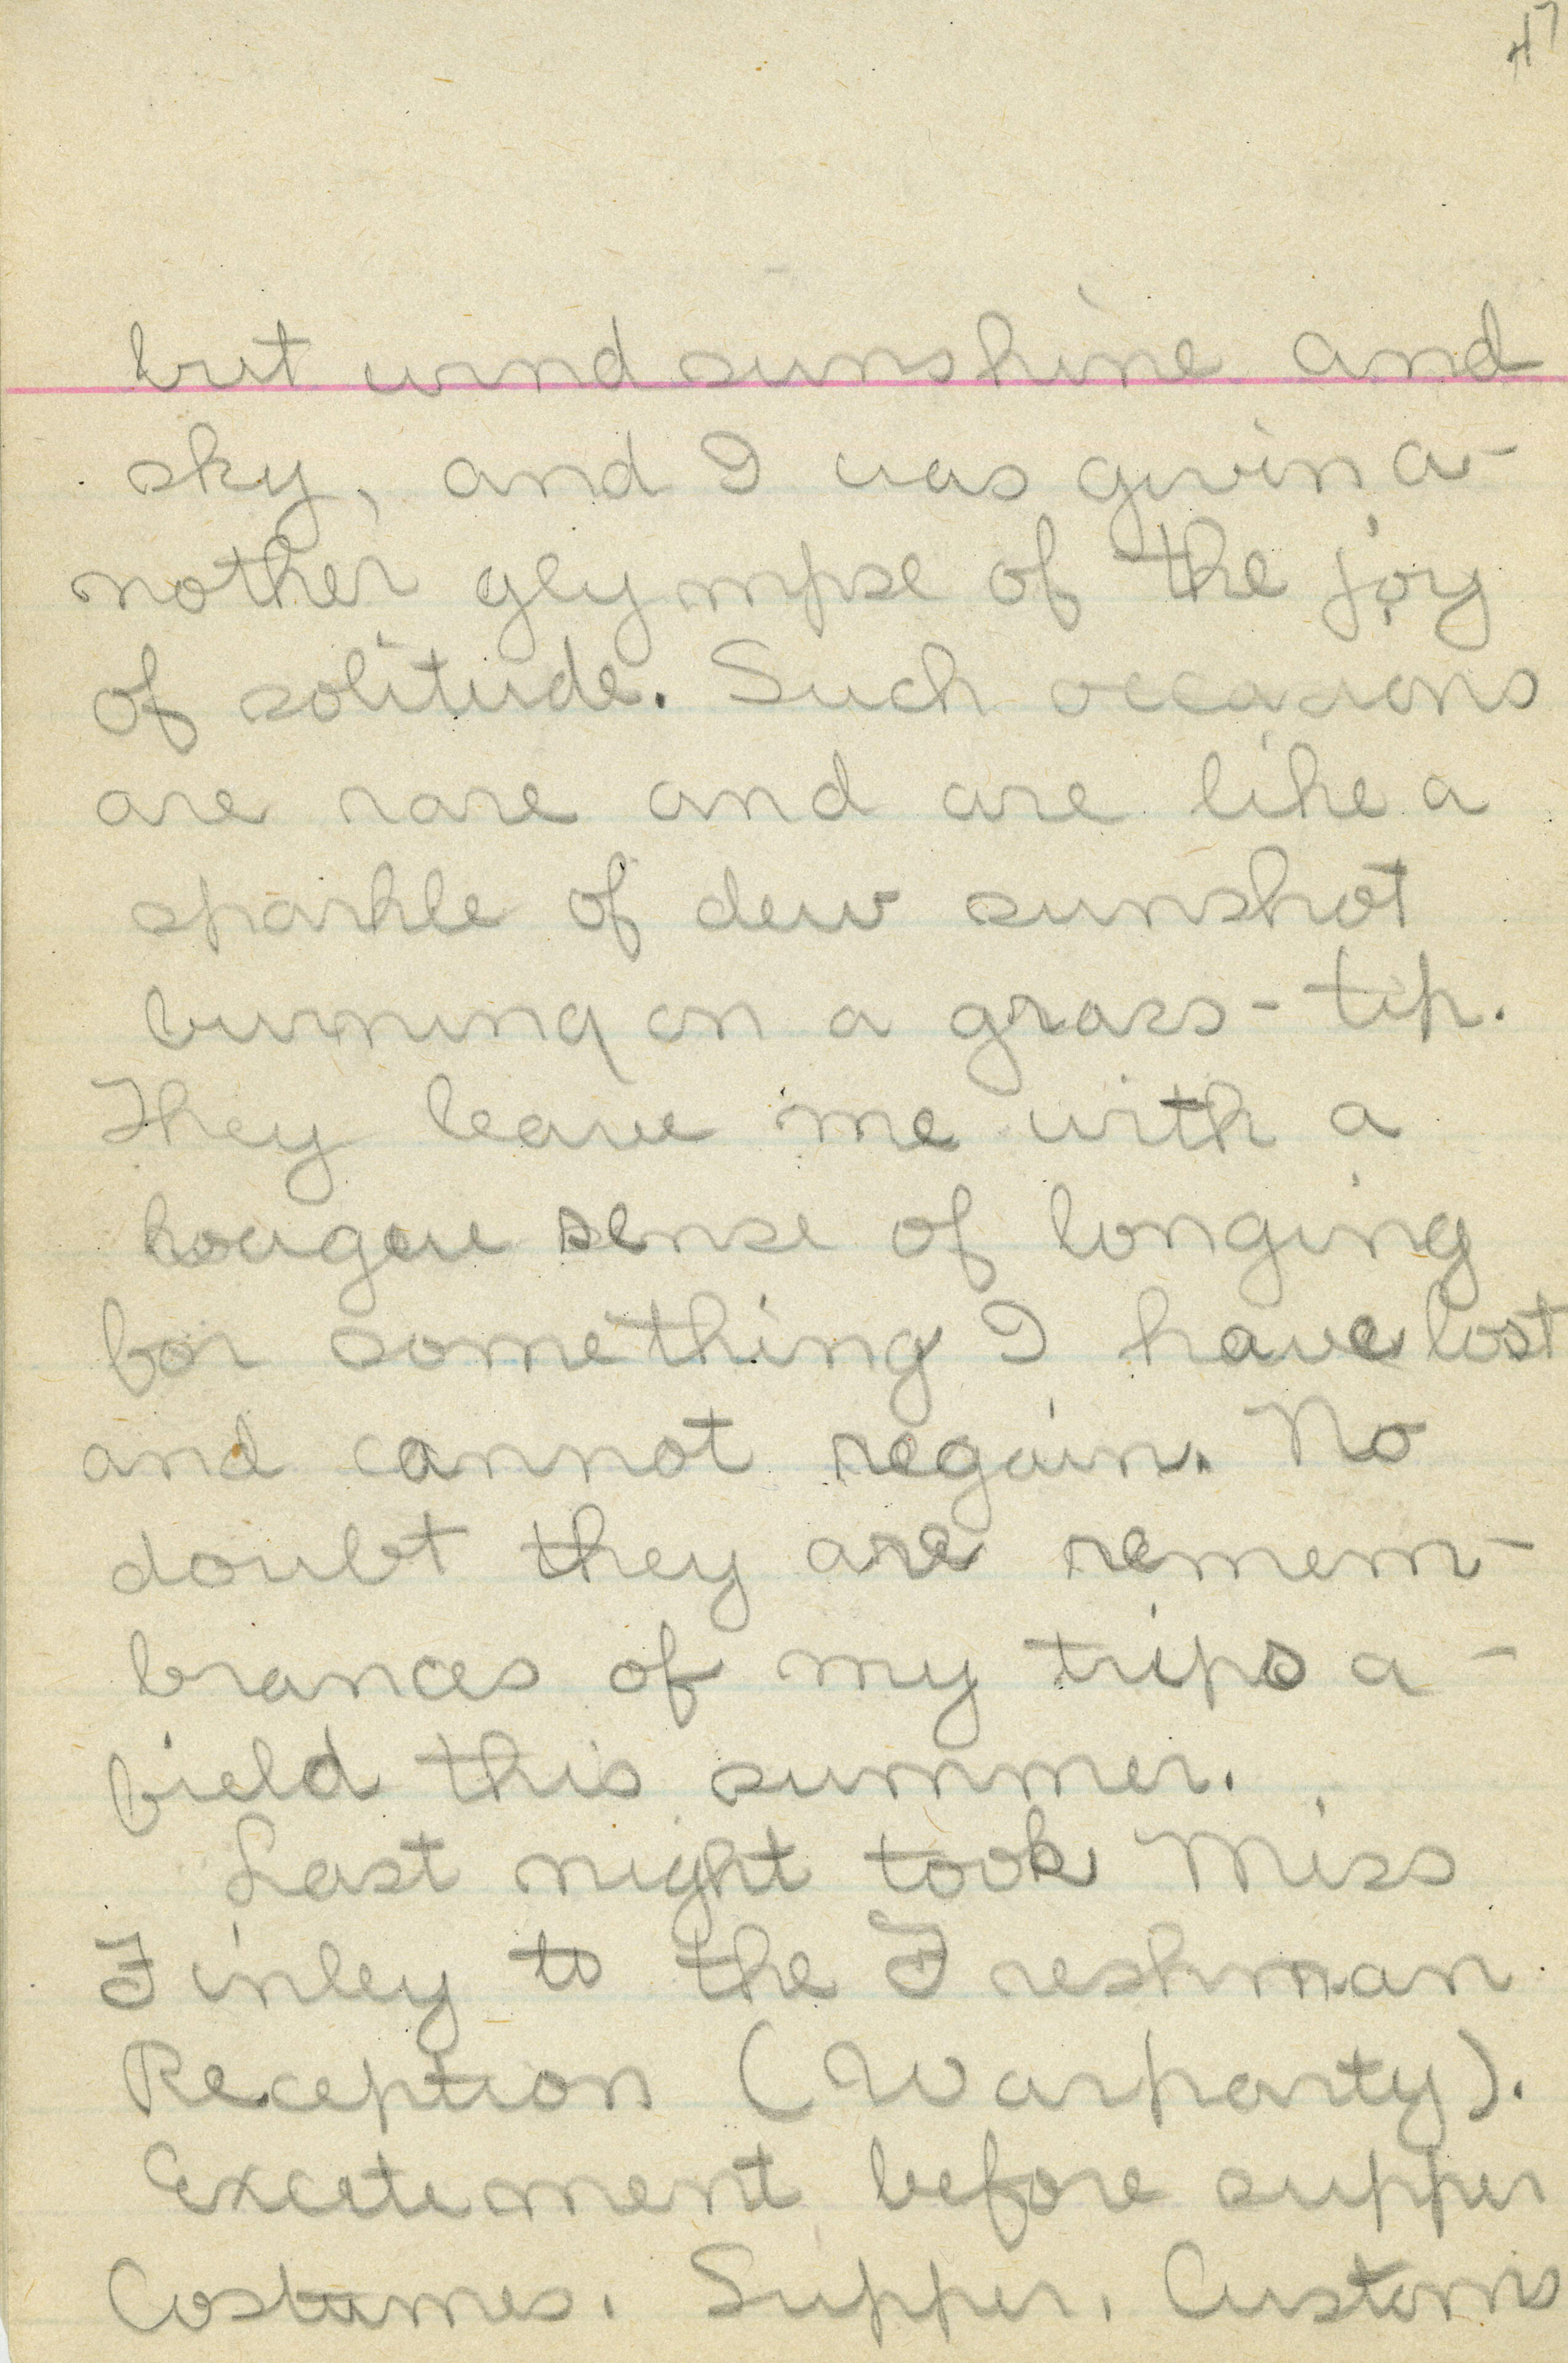 47
but wind sunshine and
sky, and I was givin a-
nother glympse of the joy
of solitude. Such occasions
are rare and are like a
sparkle of dew sunshot
burning on a grass-tip.
They leave me with a
sense of longing
for something I have lost
and cannot regain. No
doubt they are remem-
brances of my trips a-
field this summer.
Last night took Miss
Finley to the Freshman
Reception (Warparty).
Excitement before supper
Costumes. Supper. Customs